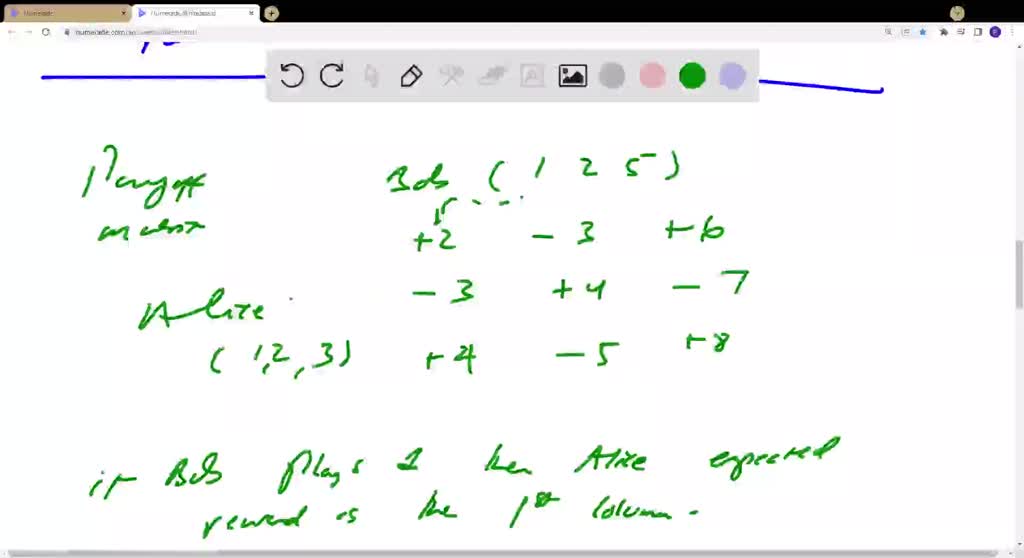 Numerade
Numerade
Payoff
matrix
Bob ( 1 2 5 )
+2 - 3 + 6
- 3 + 4 - 7
Alice
( 1, 2, 3 ) + 4 - 5 + 8
if Bob plays 1 then Alice expected
reward is the 1st column.